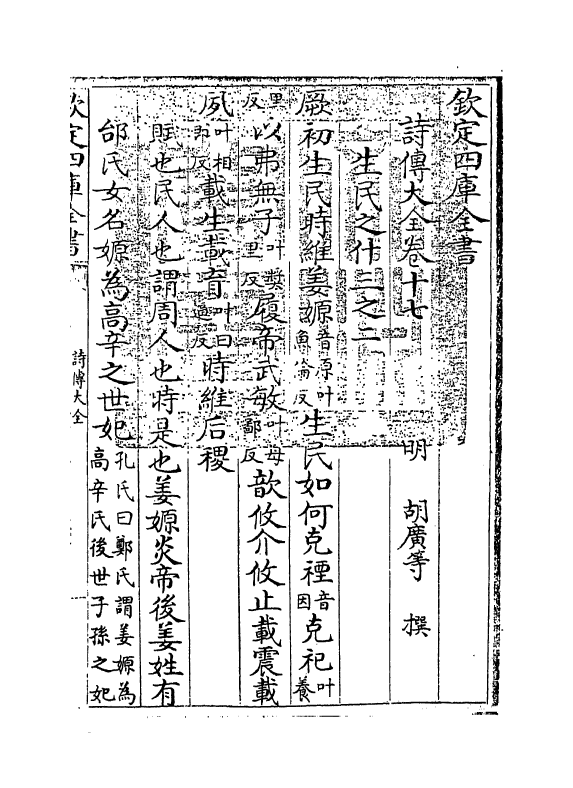 欽定四庫全書
詩傳大全卷十七
明 胡廣等 撰
生民之什三之二
厥初生民時維姜嫄音原叶魚倫反生民如何克禋音因克祀叶養
里反以弗無子叶奬里反履帝武敏叶母鄙反歆攸介攸止載震載
夙叶相即反載生載育叶曰逼反時維后稷
賦也民人也謂周人也時是也姜嫄炎帝後姜姓有
邰氏女名嫄為高辛之世妃孔氏曰鄭氏謂姜嫄為高辛氏後世子孫之妃
欽定四庫全書
詩傳大全